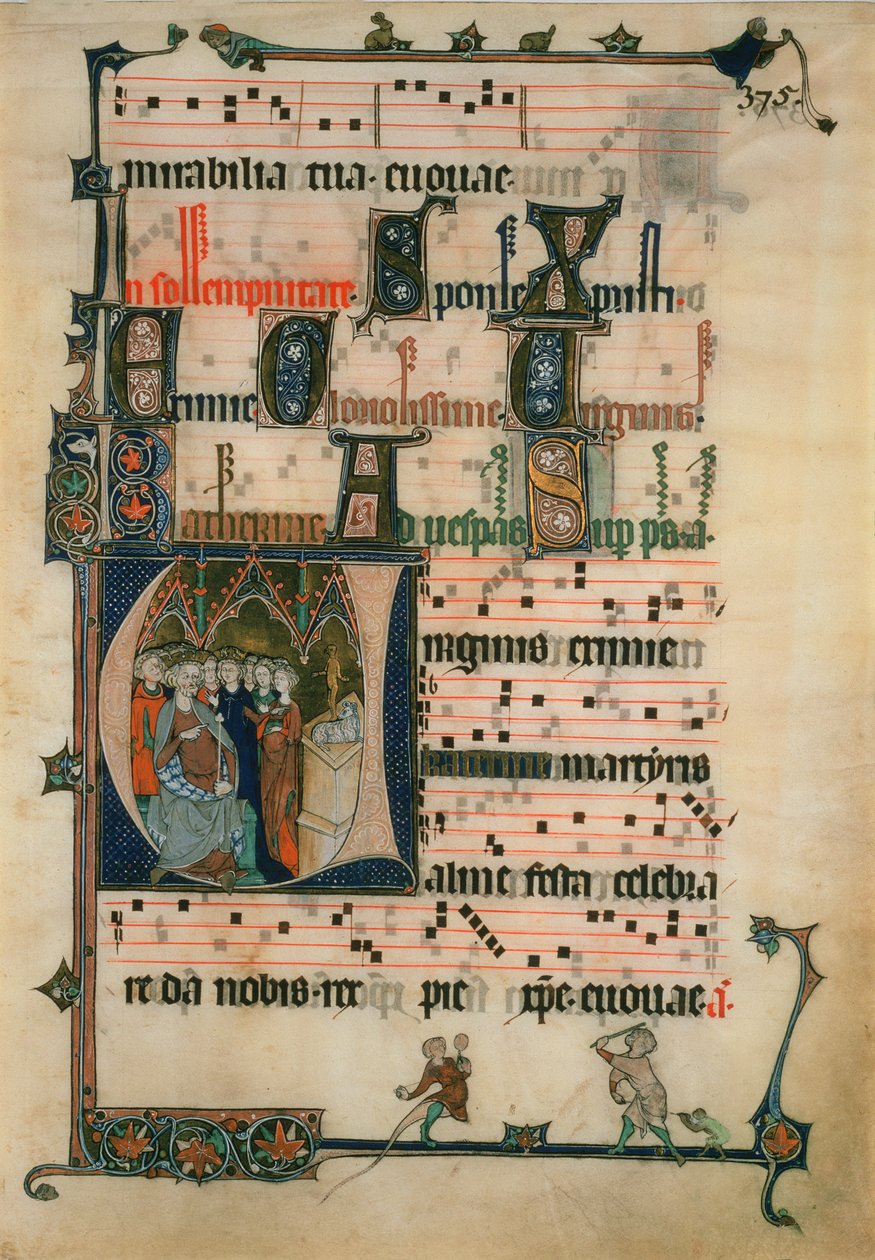 375.
mirabilia tua. euouae.
In sollempnitate. Sponse Xpristi.
Eximie. Gloriosissime. Virginis.
Katherine. Ad uesp̄as. Sup̱ ps. a.
Virginis eximie
katerine martyris
alme festa celebra
re da nobis. rex pie xp̄e. euouae. a.